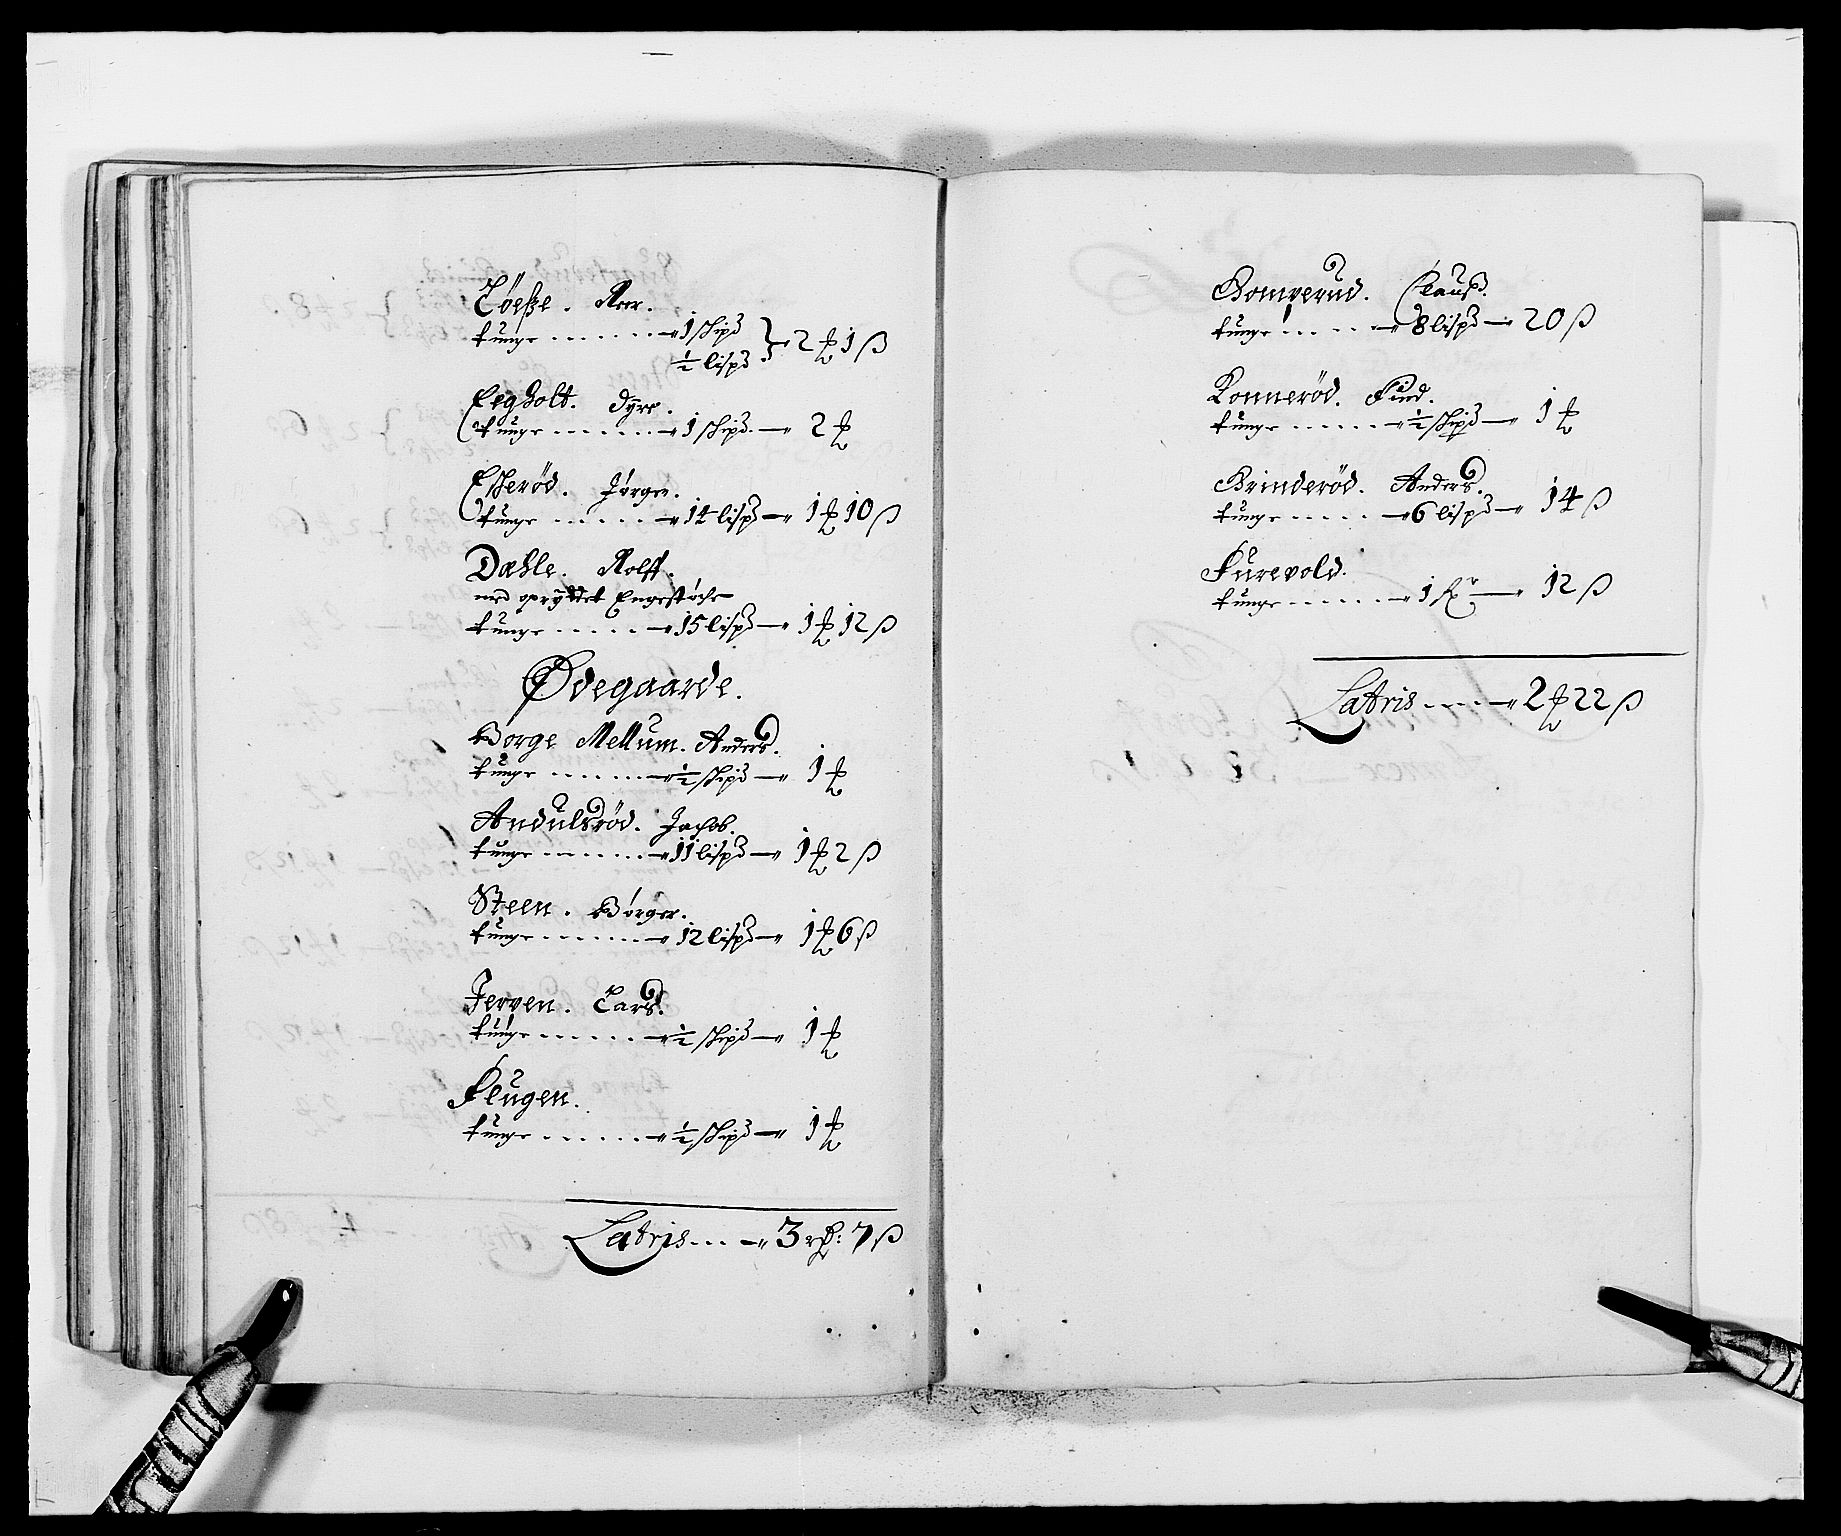 Løeße. Roer.
tunge ...... 1 skipd
½ lispd } 2 ₰ 1 ß
Eegholt. Dyre.
tunge ...... 1 skipd. — 2 ₰
Esterød. Jørgen.
tunge ...... 14 lispd — 1 ₰ 10 ß
Dæhle. Rolff.
med opryddet Engestøche
tunge ...... 15 lispd — 1 ₰ 12 ß
Ødegaarde.
Borge Mellum. Anders.
tunge ...... ½ skipd — 1 ₰
Andulsrød. Jachob.
tunge ...... 11 lispd — 1 ₰ 2 ß
Steen. Børger.
tunge ...... 12 lispd — 1 ₰ 6 ß
Jerven. Lars.
tunge ...... ½ skipd — 1 ₰
Flugen.
tunge ...... ½ skipd — 1 ₰
Latris .... 3 rd: 7 ß
Bomverud. Clauß.
tunge ..... 8 lispd — 20 ß
Konnerød. Find.
tunge ..... ½ skipd — 1 ₰
Grinderød. Anders.
tunge ..... 6 lispd — 14 ß
Furevold.
tunge ..... 1 — 12 ß
Latris .... 2 ₰ 22 ß